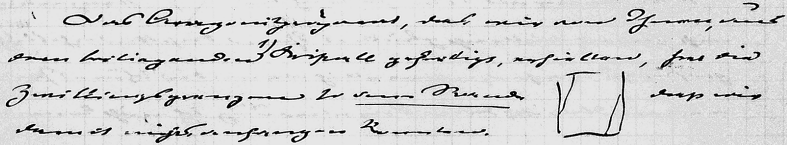 Das Aragonitpräparat, das wir von Ihnen, aus
dem beiliegenden 1) Kristall gefertigt, erhielten, hat die
Zwillingsgrenzen so am Rande dass wir
damit nichts anfangen konnten.